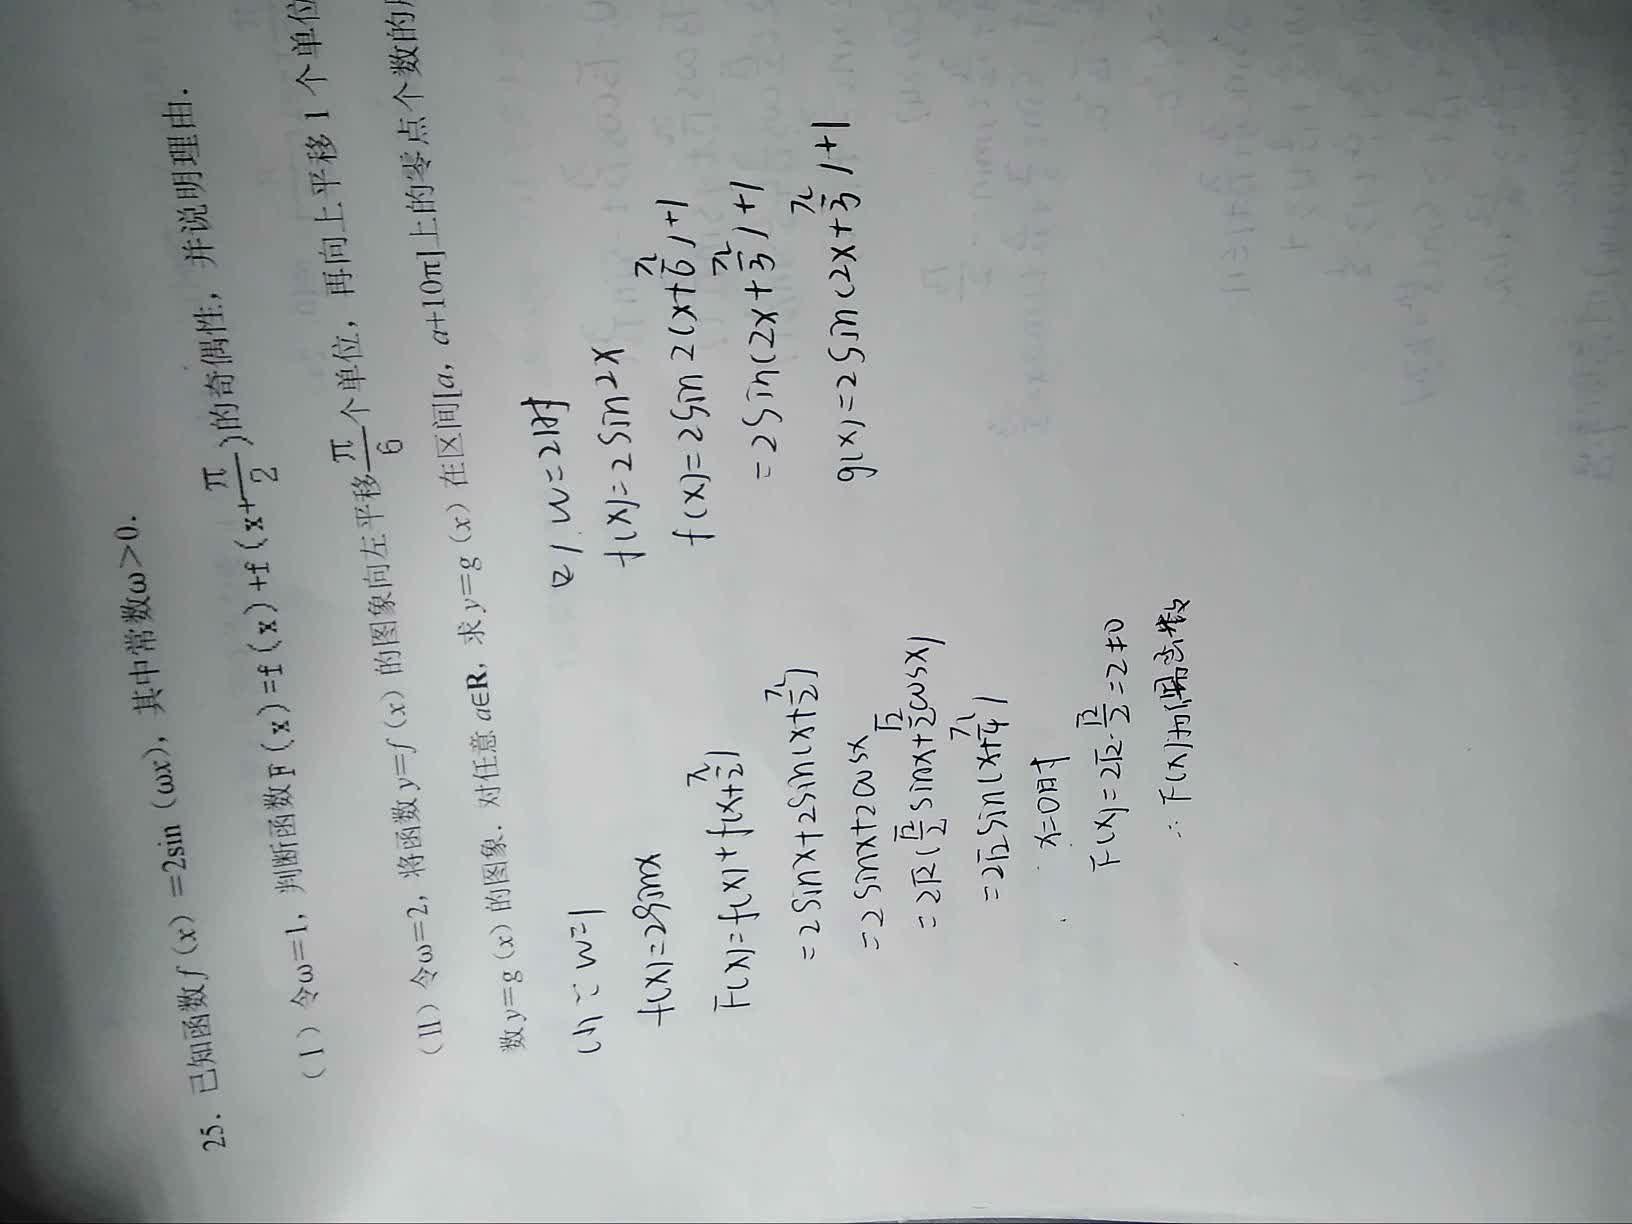 25. 已知函数f(x)=2sin(ωx), 其中常数ω>0.
(I)令ω=1, 判断函数F(x)=f(x)+f(x+π/2)的奇偶性, 并说明理由.
(II)令ω=2, 将函数y=f(x)的图象向左平移π/6个单位, 再向上平移1个单位
数y=g(x)的图象. 对任意a∈R, 求y=g(x)在区间[a, a+10π]上的零点个数的
(1) ∵ w=1
f(x)=2sinx
F(x)=f(x)+f(x+π/2)
=2sinx+2sin(x+π/2)
=2sinx+2cosx
=2√2(√2/2sinx+√2/2cosx)
=2√2sin(x+π/4)
x=0时
F(x)=2√2·√2/2=2≠0
∴F(x)为偶函数
(2). w=2时
f(x)=2sin2x
f(x)=2sin2(x+π/6)+1
=2sin(2x+π/3)+1
g(x)=2sin(2x+π/3)+1